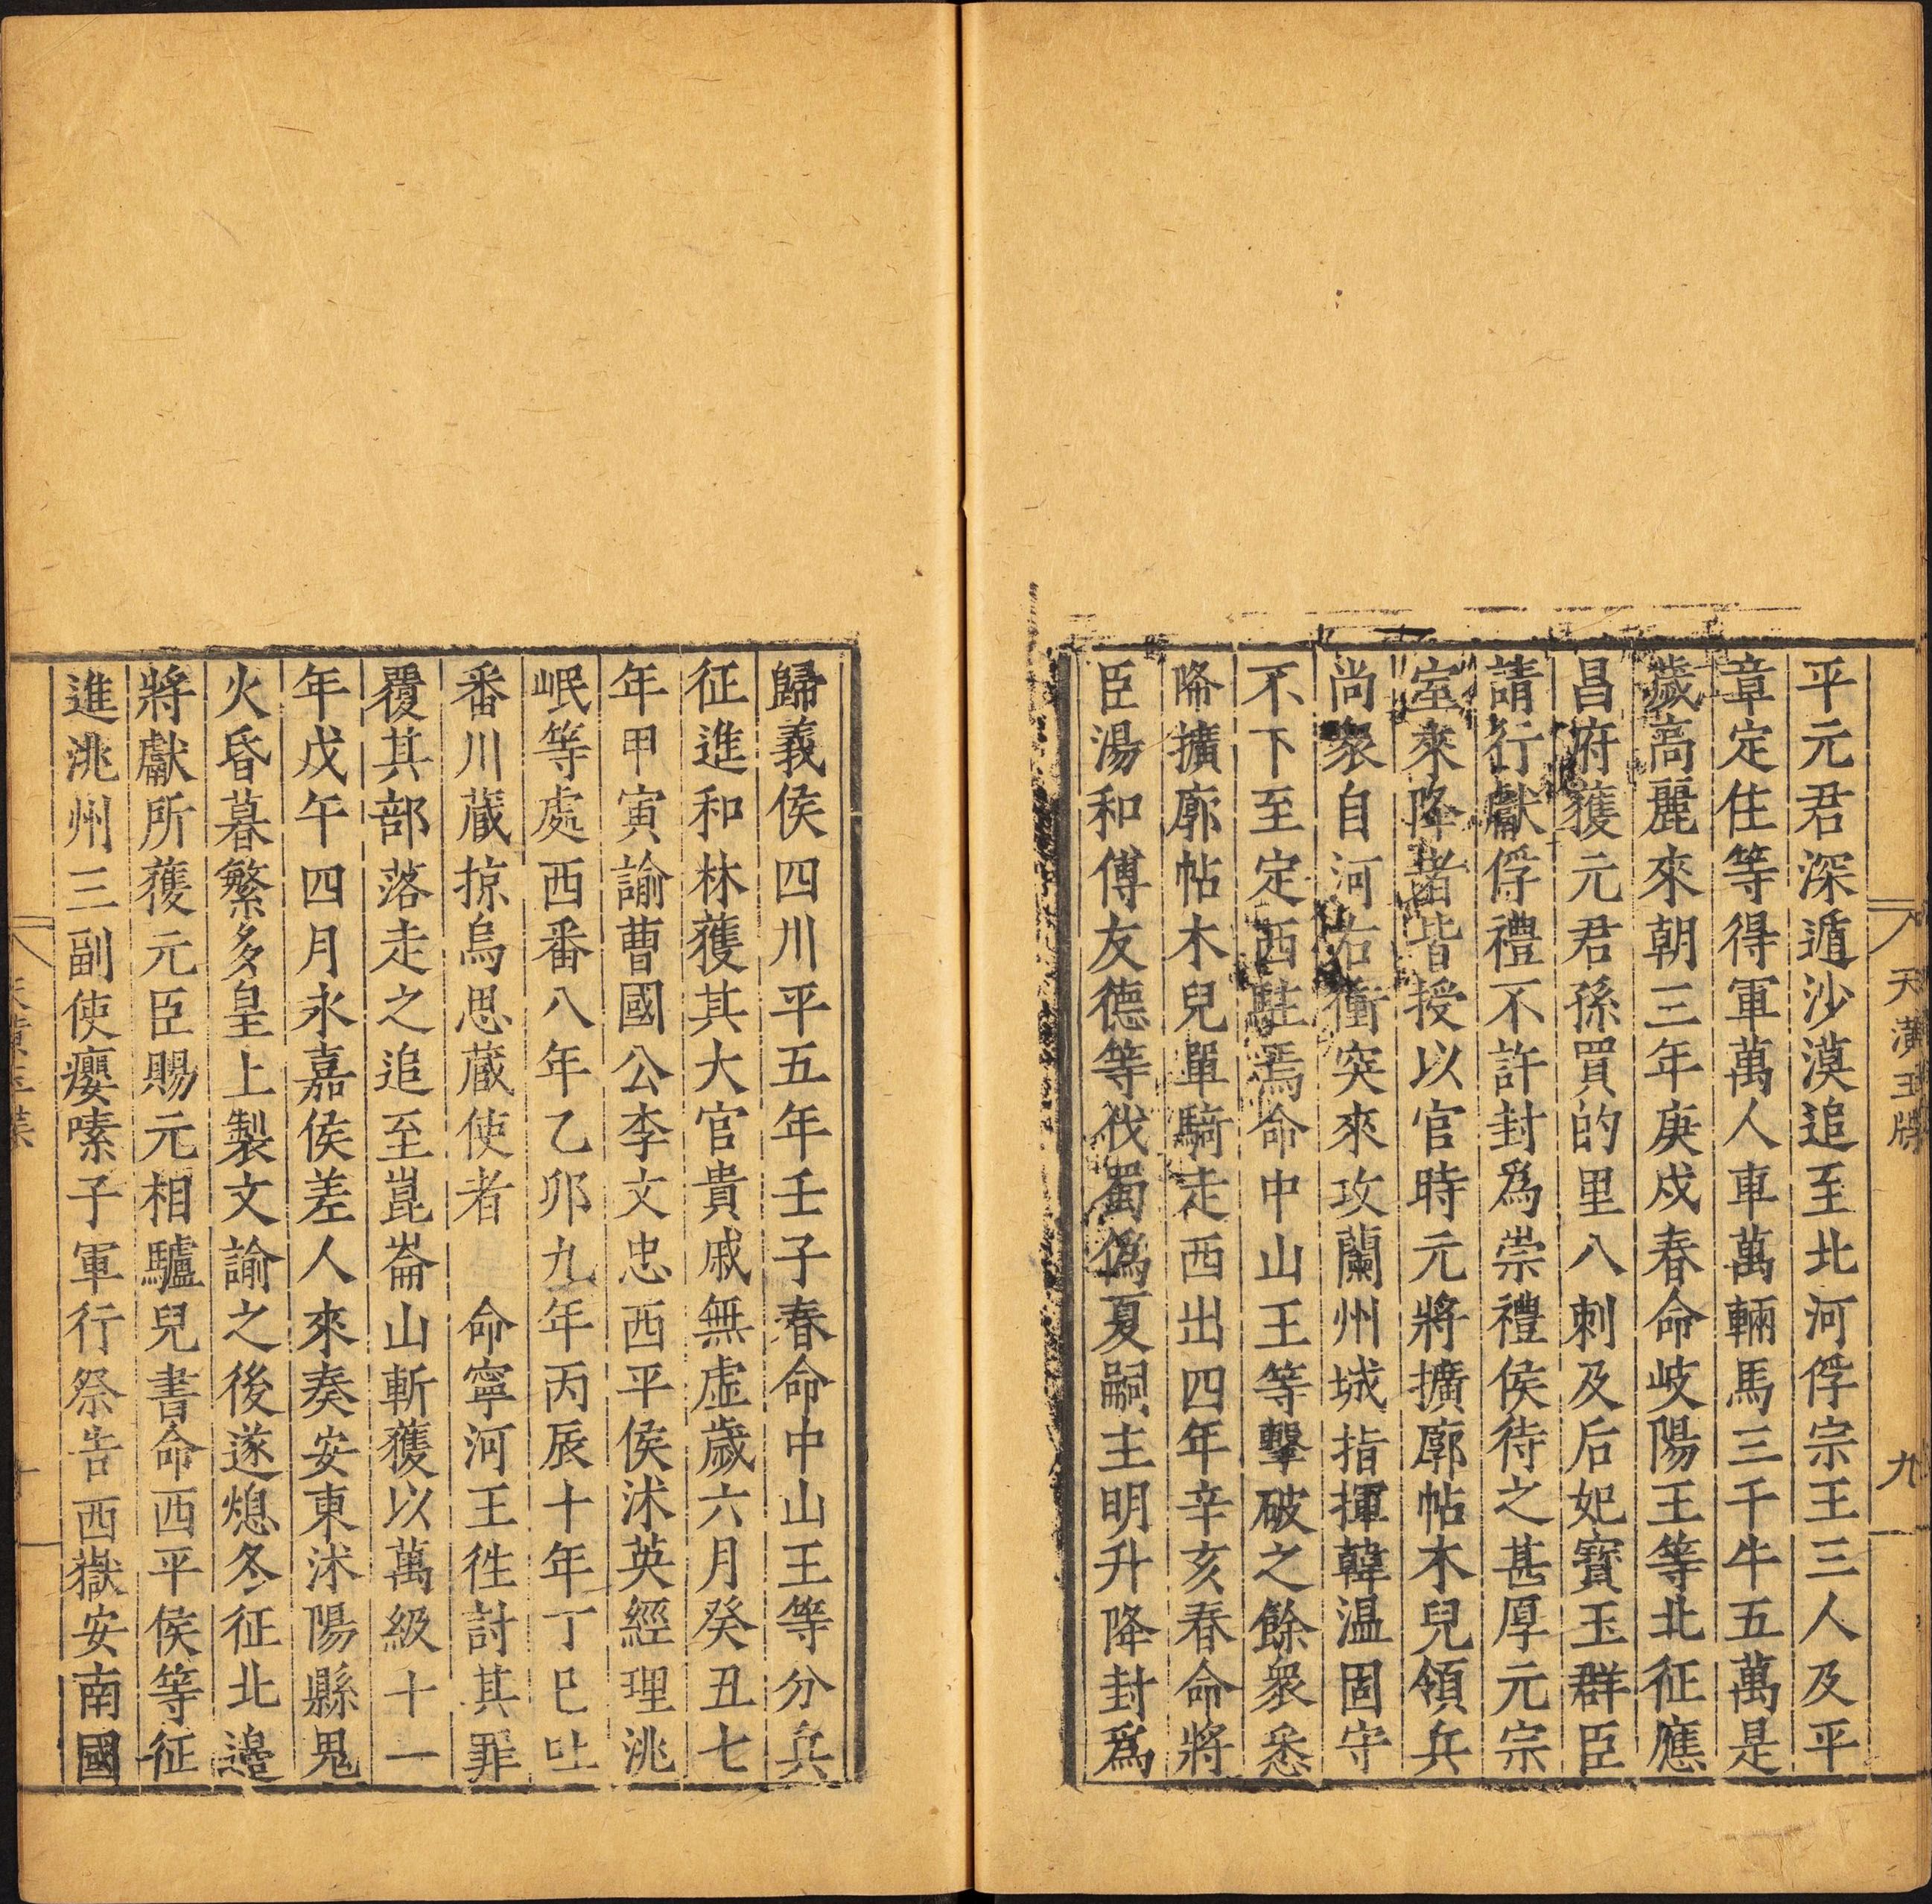 天潢玉牒
九
平元君深遁沙漠追至北河俘宗王三人及平
章定住等得軍萬人車萬輛馬三千牛五萬是
歲高麗來朝三年庚戍春命岐陽王等北征應
昌府獲元君孫買的里八剌及后妃寶玉群臣
請行獻俘禮不許封爲崇禮侯待之甚厚元宗
室來降者皆授以官時元將擴廓帖木兒領兵
尚衆自河右衝突來攻蘭州城指揮韓温固守
不下至定西駐焉命中山王等擊破之餘衆悉
降擴廓帖木兒單騎走西出四年辛亥春命將
臣湯和傅友德等伐蜀僞夏嗣主明升降封爲
歸義侯四川平五年壬子春命中山王等分兵
征進和林獲其大官貴戚無虛歲六月癸丑七
年甲寅諭曹國公李文忠西平侯沐英經理洮
岷等處西番八年乙卯九年丙辰十年丁巳吐
番川藏掠烏思藏使者 命寧河王徃討其罪
覆其部落走之追至崑崙山斬獲以萬級十一
年戊午四月永嘉侯差人來奏安東沭陽縣鬼
火昏暮繁多皇上製文諭之後遂熄冬征北邊
將獻所獲元臣賜元相驢兒書命西平侯等征
進洮州三副使癭嗉子軍行祭告西嶽安南國